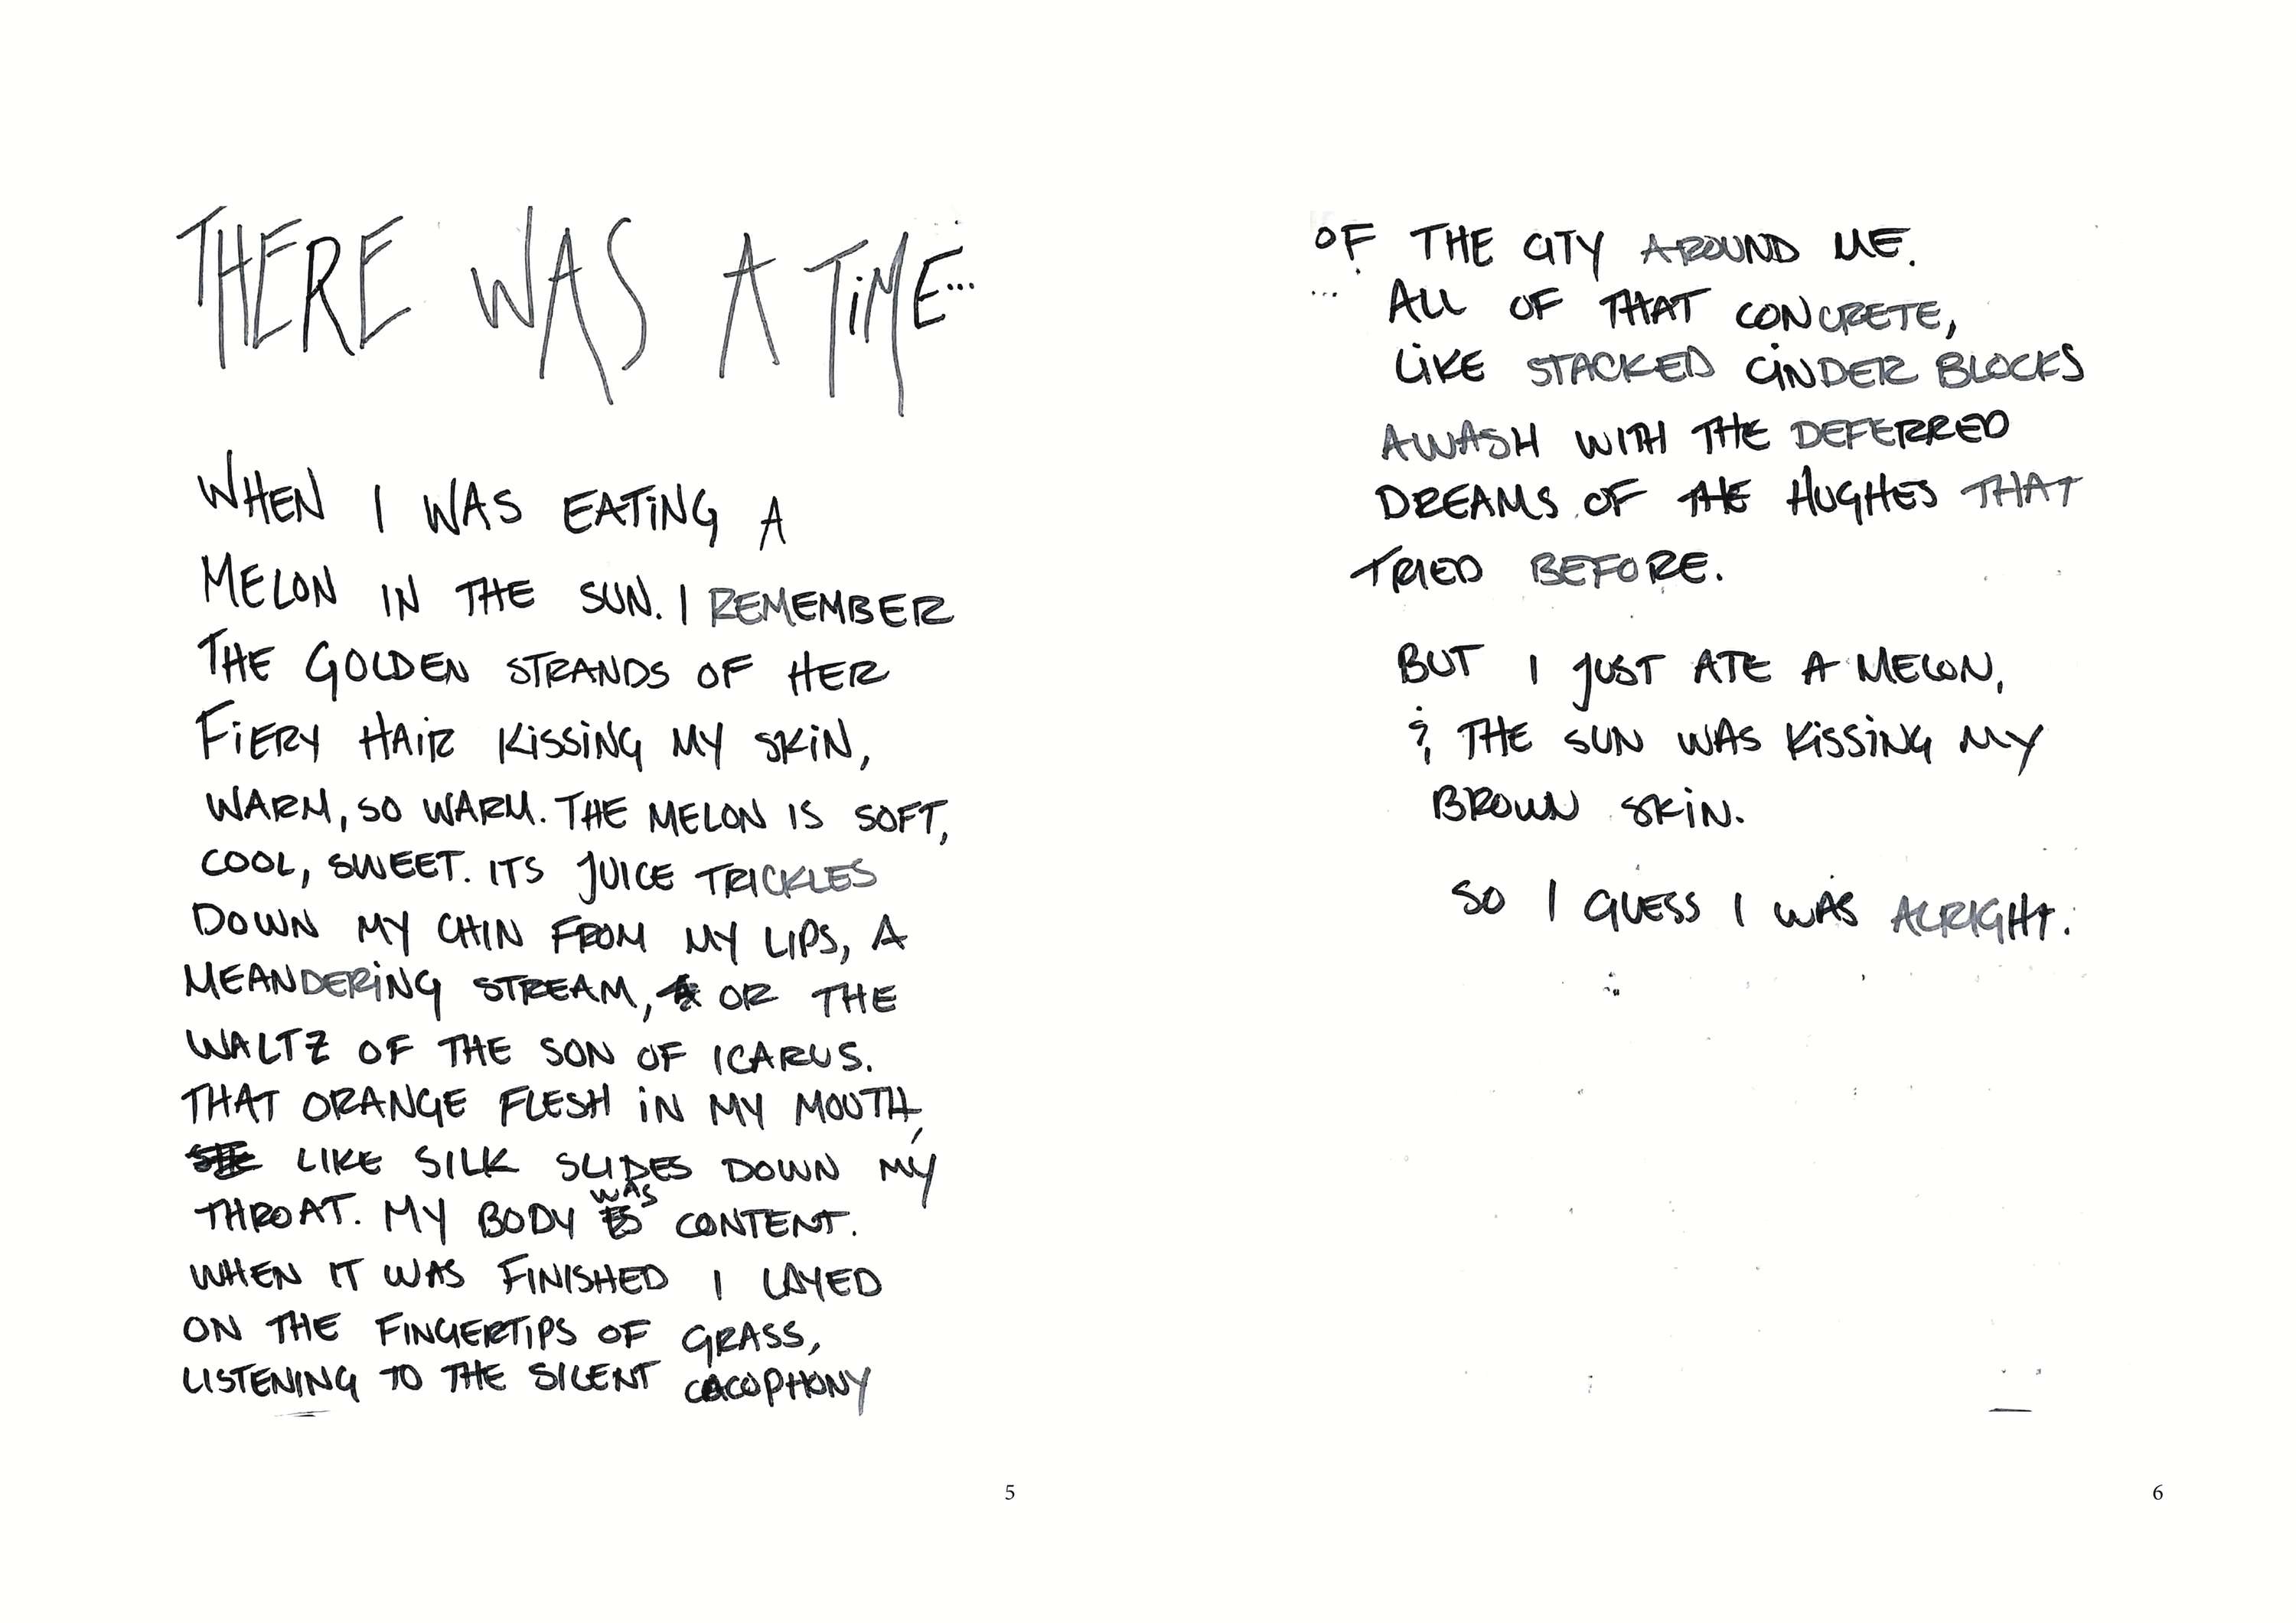 THERE WAS A TiME...
WHEN I WAS EATiNG A
MELON IN THE SUN. I REMEMBER
THE GOLDEN STRANDS OF HER
FiERY HAiR KiSSiNG MY SKiN,
WARM, SO WARM. THE MELON IS SOFT,
COOL, SWEET. ITS JUICE TRICKLES
DOWN MY CHIN FROM MY LIPS, A
MEANDERiNG STREAM, OR THE
WALTZ OF THE SON OF ICARUS.
THAT ORANGE FLESH iN MY MOUTH,
LIKE SILK SLIDES DOWN MY
THROAT. MY BODY WAS CONTENT.
WHEN IT WAS FINISHED I LAYED
ON THE FINGERTiPS OF GRASS,
LISTENING TO THE SILENT CACOPHONY
5
OF THE CITY AROUND ME.
ALL OF THAT CONCRETE,
LiKE STACKED CiNDER BLOCKS
AWASH WITH THE DEFERRED
DREAMS OF THE HUGHES THAT
TRIED BEFORE.
BUT I JUST ATE A MELON,
& THE SUN WAS KiSSiNG MY
BROWN SKiN.
SO I GUESS I WAS ALRIGHT.
6